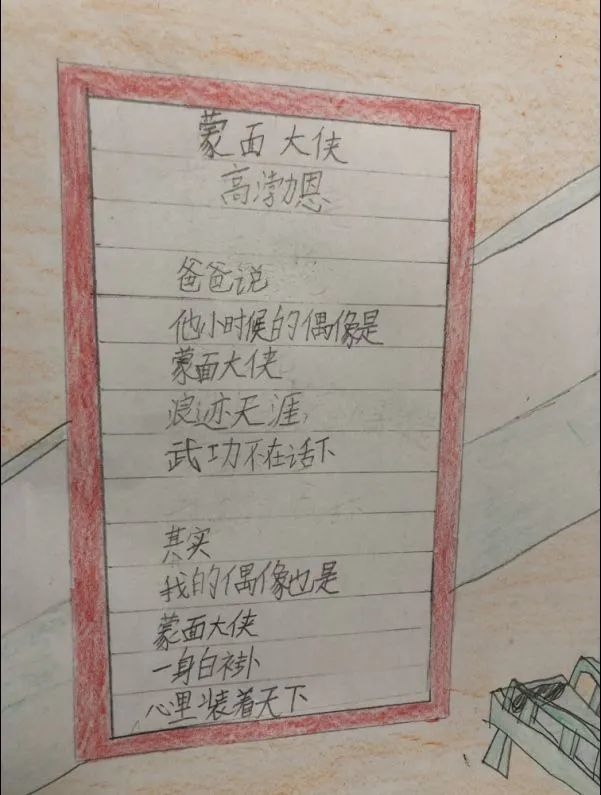 蒙面大侠
高渤恩
爸爸说
他小时候的偶像是
蒙面大侠
浪迹天涯,
武功不在话下
其实
我的偶像也是
蒙面大侠
一身白褂
心里装着天下